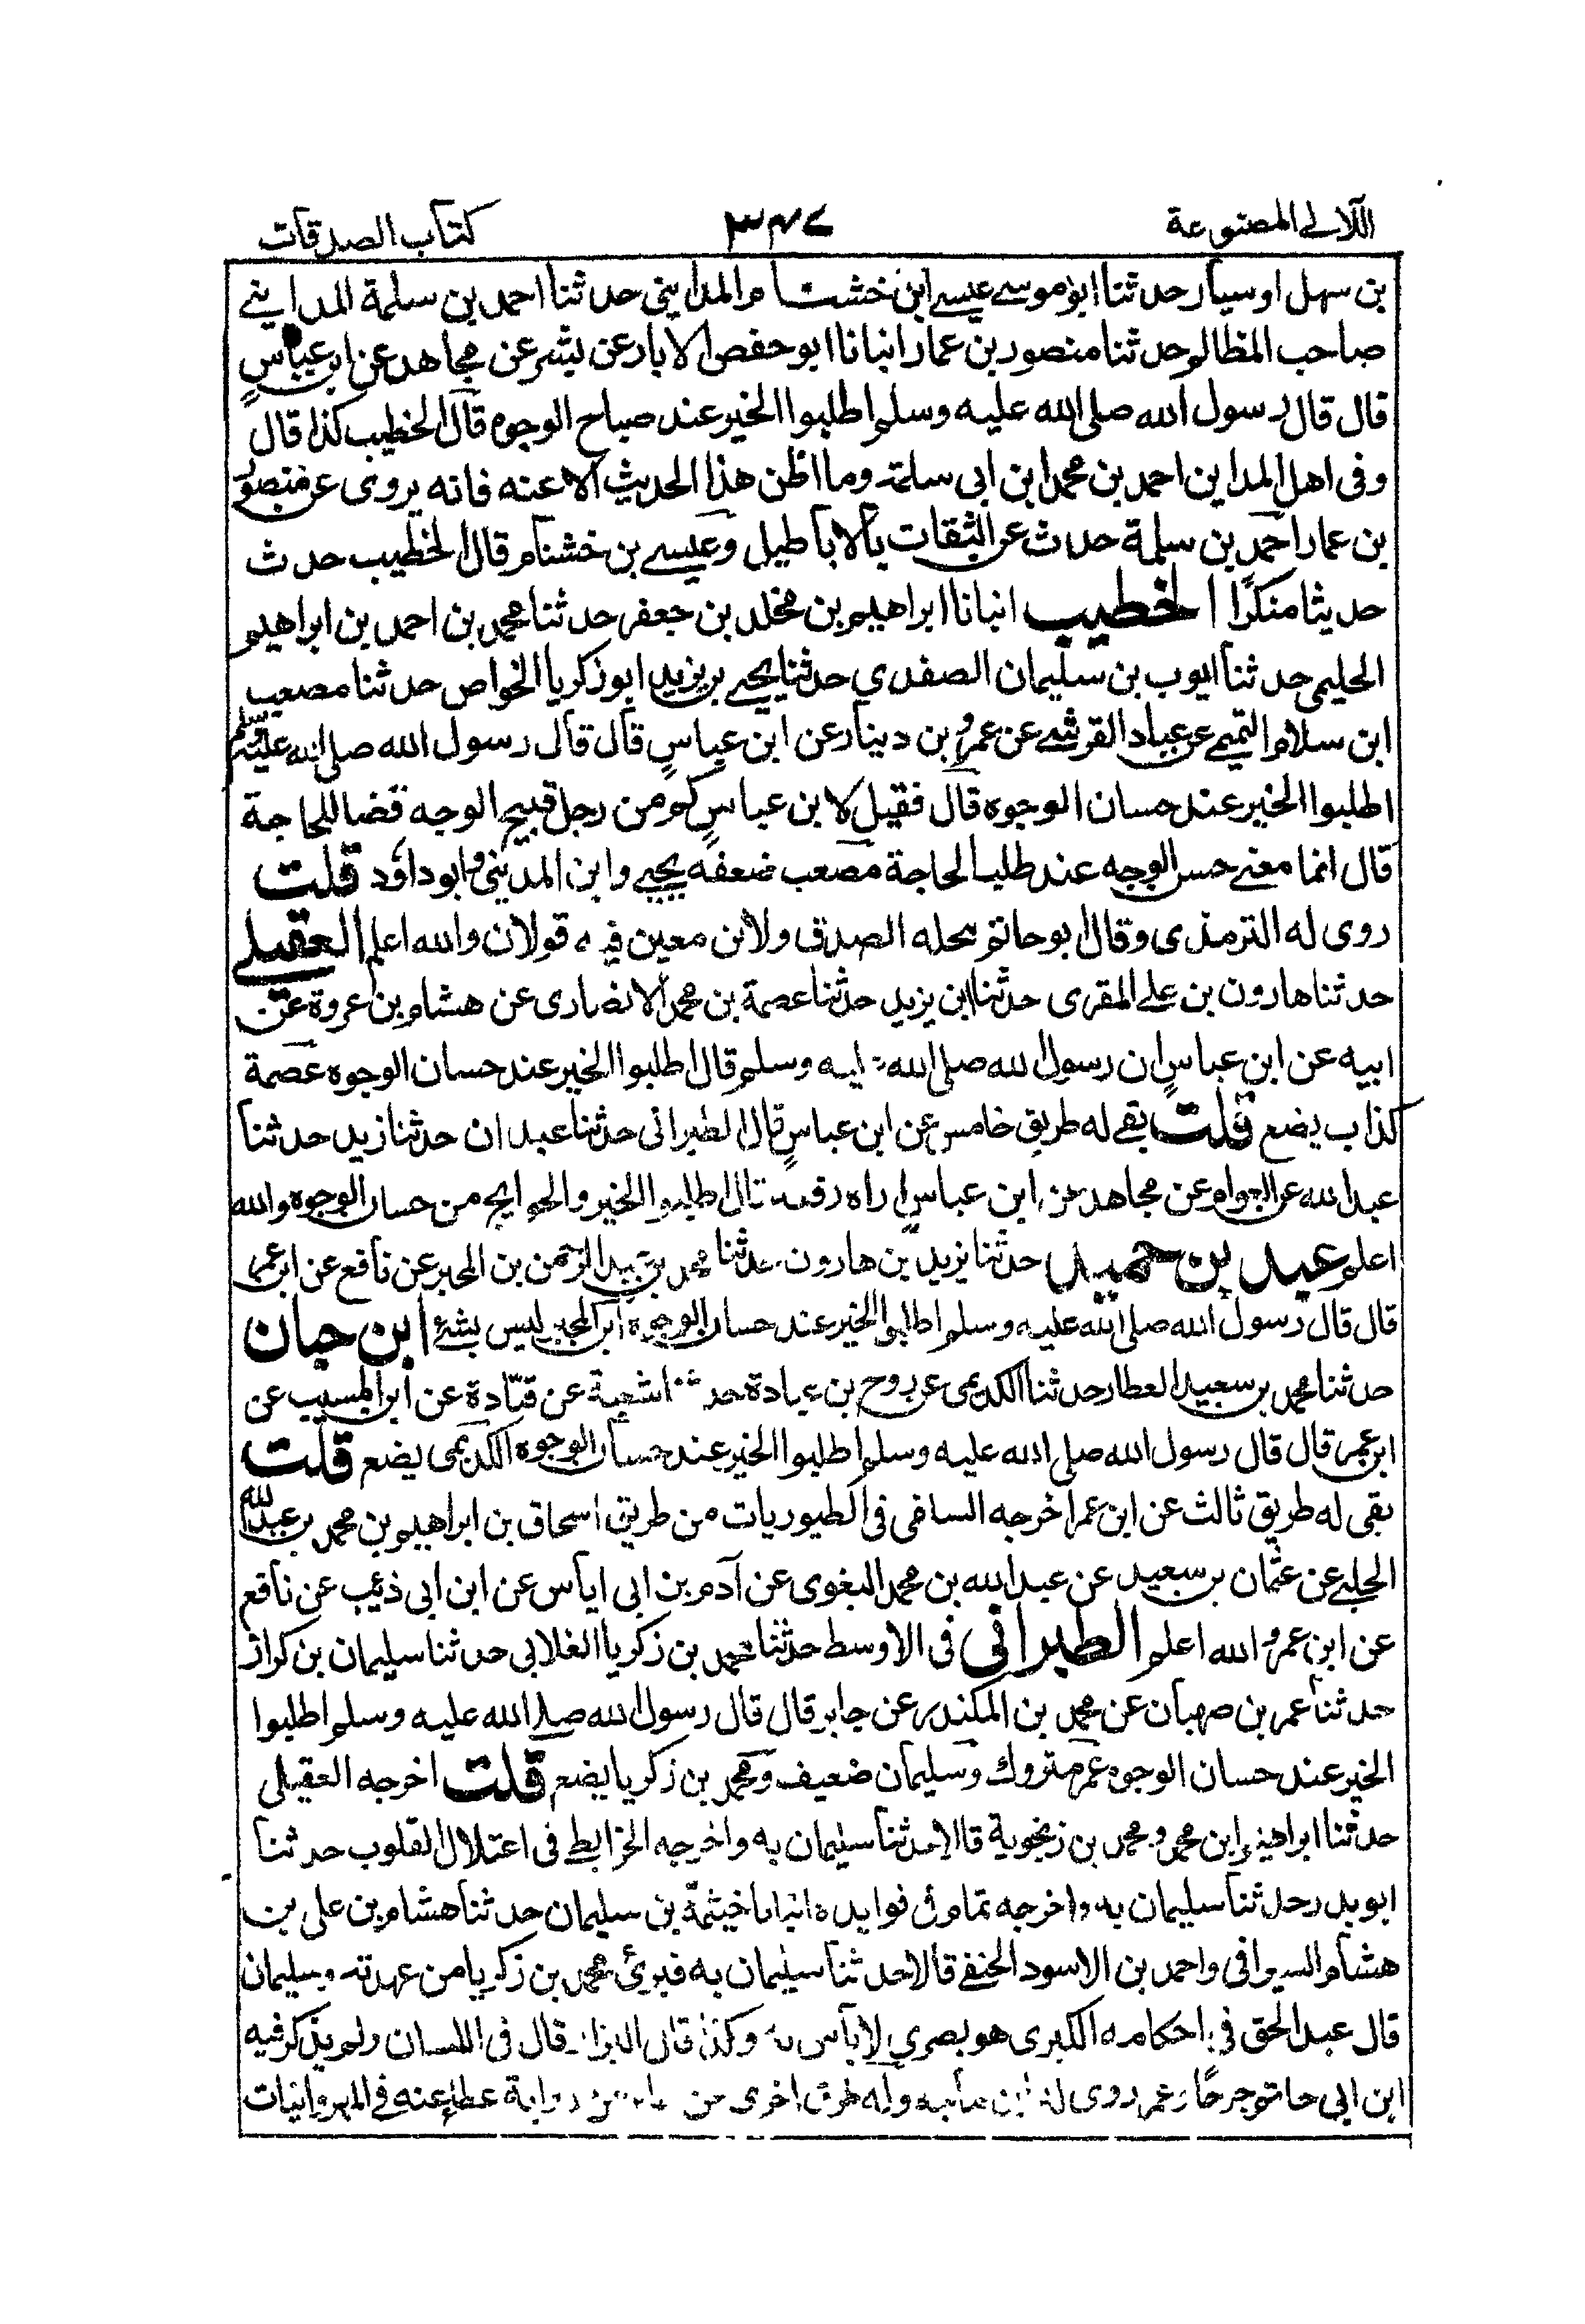 اللآلی المصنوعة ٣٤٧ کتاب الصدقات
بن سهل اوسیار حدثنا ابو موسے عیسے ابن خشنام المداینی حدثنا احمد بن سلمة المداینے
صاحب المظالم حدثنا منصور بن عمار انبانا ابو حفص الابار عن لیث عن مجاهد عن ابن عباس
قال قال رسول الله صلی الله علیه وسلم اطلبوا الخیر عند صباح الوجوه قال الخطیب کذا قال
وفی اهل المداین احمد بن محمد ابن ابی سلمة وما اظن هذا الحدیث الا عنه فانه یروی عن منصور
بن عمار احمد بن سلمة حدث عن الثقات بالاباطیل وعیسے بن خشنام قال الخطیب حدث
حدیثا منکرًا الخطیب انبانا ابراهیم بن مخلد بن جعفر حدثنا محمد بن احمد بن ابراهیم
الحلیمی حدثنا ایوب بن سلیمان الصفدی حدثنا یحیے بن یزید ابو زکریا الخواص حدثنا مصعب
ابن سلام التمیمے عن عباد القرشے عن عمرو بن دینار عن ابن عباس قال قال رسول الله صلی الله علیه وسلم
اطلبوا الخیر عند حسان الوجوه قال فقیل لابن عباس کم من رجل قبیح الوجه قضا للحاجة
قال انما معنے حسن الوجه عند طلب الحاجة مصعب ضعفه یحیے وابن المدینی وابو داود قلت
روی له الترمذی وقال ابو حاتم محله الصدق ولابن معین فیه قولان والله اعلم العقیلے
حدثنا هارون بن علے المقری حدثنا ابن یزید حدثنا عصمة بن محمد الانصاری عن هشام بن عروة عن
ابیه عن ابن عباس ان رسول الله صلی الله علیه وسلم قال اطلبوا الخیر عند حسان الوجوه عصمة
کذاب یضع قلت بقے له طریق خامس عن ابن عباس قال الطبرانی حدثنا عبدان حدثنا زید حدثنا
عبد الله عن العوام عن مجاهد عن ابن عباس اراه رفعه قال اطلبوا الخیر والحوایج من حسان الوجوه والله
اعلم عبد بن حمید حدثنا یزید بن هارون حدثنا محمد بن عبد الرحمن بن المجبر عن نافع عن ابن عمر
قال قال رسول الله صلی الله علیه وسلم اطلبوا الخیر عند حسان الوجوه ابن المجبر لیس بشئ ابن حبان
حدثنا محمد بن سعید العطار حدثنا الکدیمی عن روح بن عبادة حدثنا شعبة عن قتادة عن ابن المسیب عن
ابن عمر قال قال رسول الله صلی الله علیه وسلم اطلبوا الخیر عند حسان الوجوه الکدیمی یضع قلت
بقی له طریق ثالث عن ابن عمر اخرجه السلفی فی الطیوریات من طریق اسحاق بن ابراهیم بن محمد بن عبد الله
الجلے عن عثمان بن سعید عن عبد الله بن محمد البغوی عن آدم بن ابی ایاس عن ابن ابی ذئب عن نافع
عن ابن عمر والله اعلم الطبرانی فی الاوسط حدثنا محمد بن زکریا الغلابی حدثنا سلیمان بن کراز
حدثنا عمر بن صهبان عن محمد بن المکندر عن جابر قال قال رسول الله صلے الله علیه وسلم اطلبوا
الخیر عند حسان الوجوه عمر متروك وسلیمان ضعیف ومحمد بن زکریا یضع قلت اخرجه العقیلی
حدثنا ابراهیم ابن محمد ومحمد بن زنجویة قالا حدثنا سلیمان به واخرجه الخرایطے فی اعتلال القلوب حدثنا
ابو بدر حدثنا سلیمان به واخرجه تمام فی فوایده انبانا خیثمة بن سلیمان حدثنا هشام بن علی بن
هشام السیرافی واحمد بن الاسود الحنفے قالا حدثنا سلیمان به فبرئ محمد بن زکریا من عهدته وسلیمان
قال عبد الحق فی احکامه الکبری هو بصری لا باس به وکذا قال البزار قال فی اللسان ولم یذکر فیه
ابن ابی حاتم جرحًا وعمر روی له ابن ماجه وله طرق اخری من روایة عطاء عنه فے المهروانیات